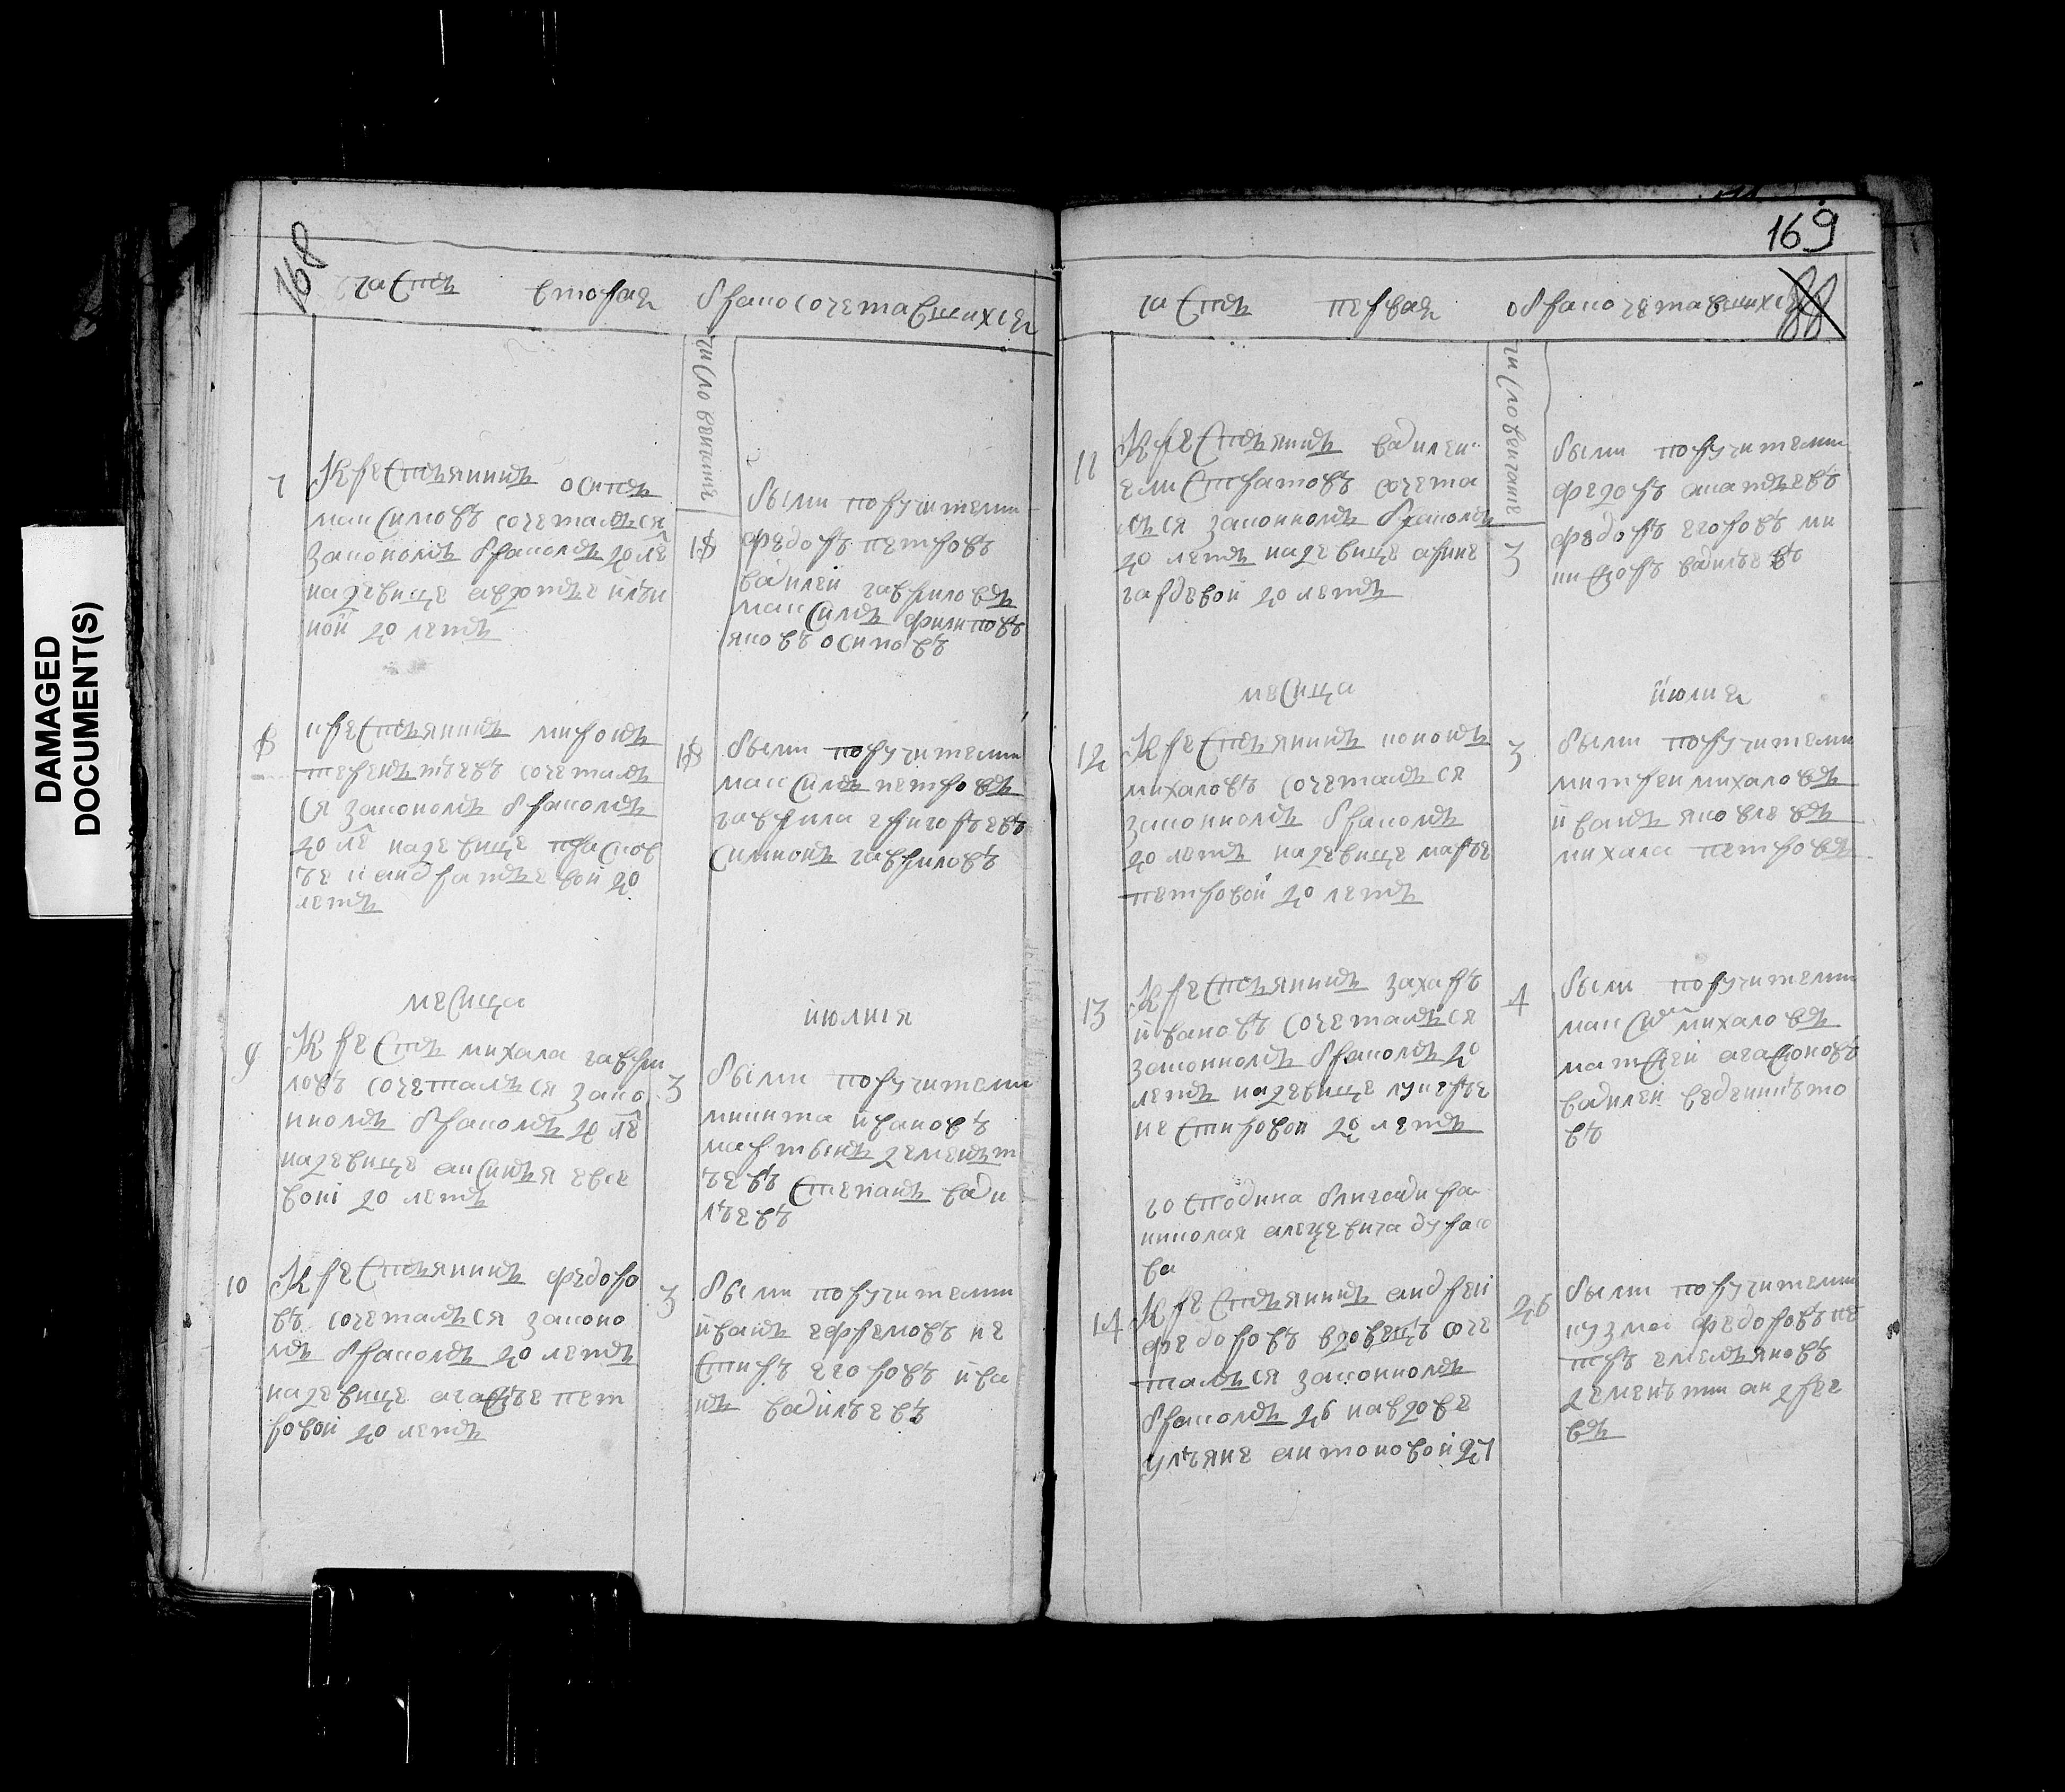 DAMAGED
DOCUMENT(S)
168
часть вторая бракосочетавшихся
число венчания
7
Крестьянинъ осипъ
максимовъ сочеталься
закономъ бракомъ 20 лѣ
надевице авдотье ильи
ной 20 летъ
18
были поручители
федоръ петровъ
василей гавриловъ
максимъ филиповъ
яковъ осиповъ
8
крестьянинъ миронъ
терентьевъ сочеталъ
ся закономъ бракомъ
20 ле надевице прасков
ье и андратьевой 20
летъ
18
были поручители
максимъ петровъ
гаврила григорьевъ
симионъ гавриловъ
месица июлия
9
Кресть михала гаври
ловъ сочеталься зако
нномъ бракомъ 20 ле
надевице аксинья евсе
воиі 20 летъ
3
были поручители
никита ивановъ
мартынъ деменьт
ьевъ степанъ васи
льевъ
10
Крестьянинъ федоро
въ сочеталься законо
мъ бракомъ 20 летъ
надевице агафье пет
ровой 20 летъ
3
были поручители
иванъ ефремовъ не
стиръ егоровъ ива
нъ васильевъ
169
88
часть первая обракочетавшихся
число венчание
11
Крестьянинъ василей
елистратовъ сочета
лься законномъ бракомъ
20 летъ надевице арине
гардевой 20 летъ
3
были поручители
федоръ
федоръ егоровъ ми
васильевъ
месица июлия
12
Крестьянинъ кононъ
михаловъ сочеталься
законномъ бракомъ
20 летъ надевице марье
петровой 20 летъ
3
были поручители
митреи михаловъ
иванъ яковлевъ
михала петровъ
13
Крестьянинъ захаръ
ивановъ сочеталься
законномъ бракомъ 20
летъ надевице лукерье
нестировои 20 летъ
4
были поручители
максим михаловъ
матфеи агафоновъ
василеи веденикьто
въ
господина блигади ра
николая алецевича дурасо
ва
14
Крестьянинъ андреи
федоровъ вдовецъ соче
тался законномъ
бракомъ 26 навдове
ульяне антоновой 27
26
были поручители
кузмаі федоровъ пе
тръ емельяновъ
деменьти андрее
въ